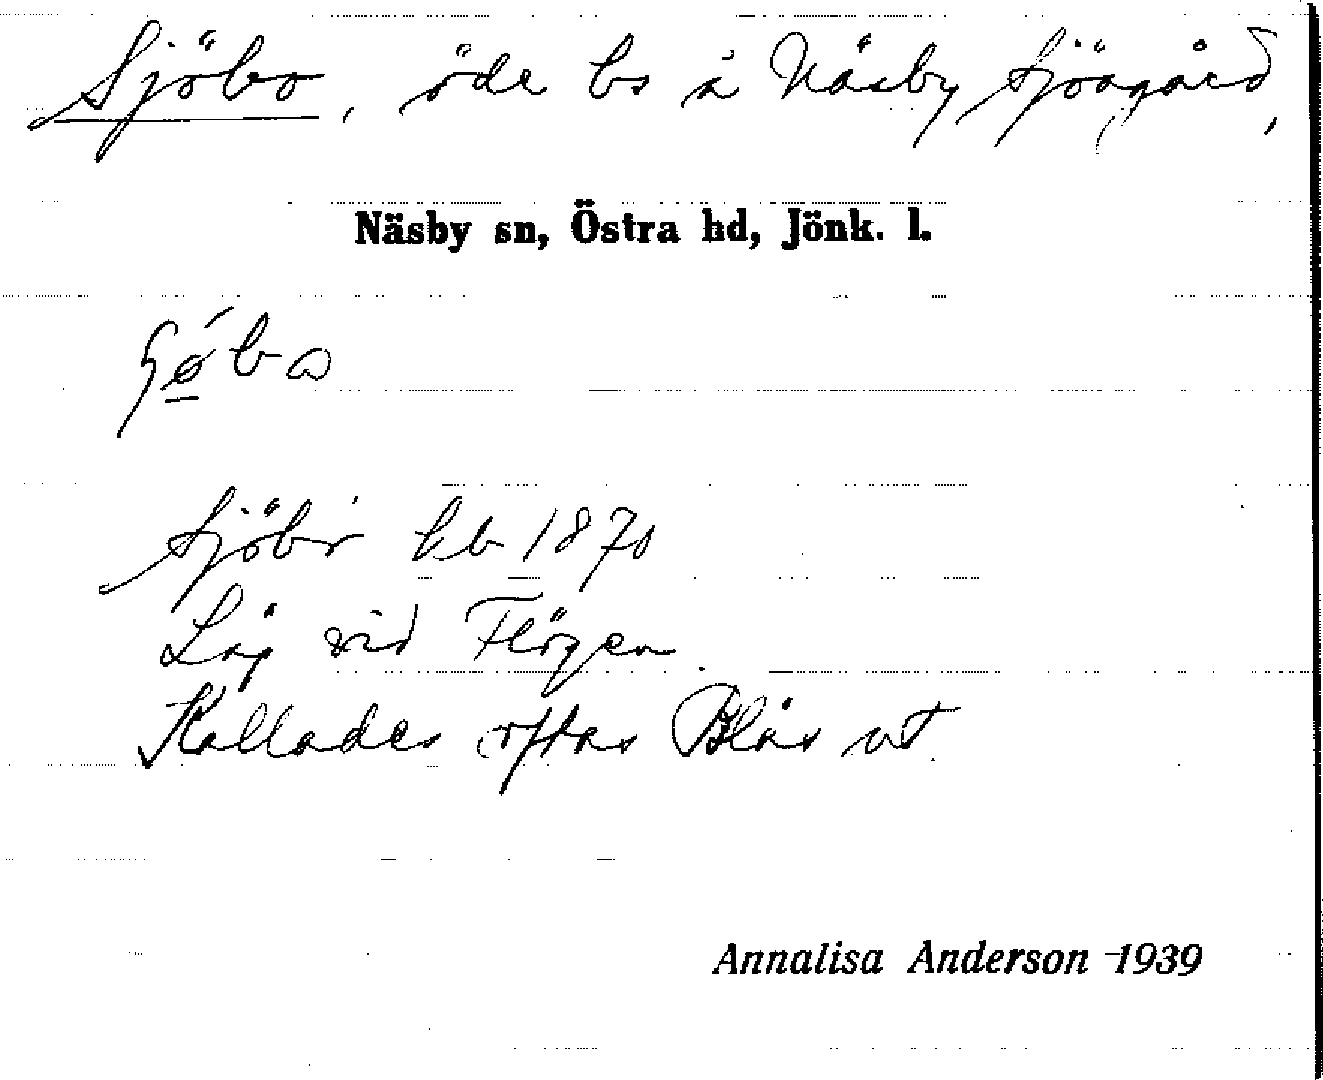 Sjöbo, öde bs å Näsby sjöagård,
Näsby sn, Östra hd, Jönk. l.
Sjöbo hb 1870
Låg vid Flögen.
Kallades oftas Blås ut.
Annalisa Anderson 1939